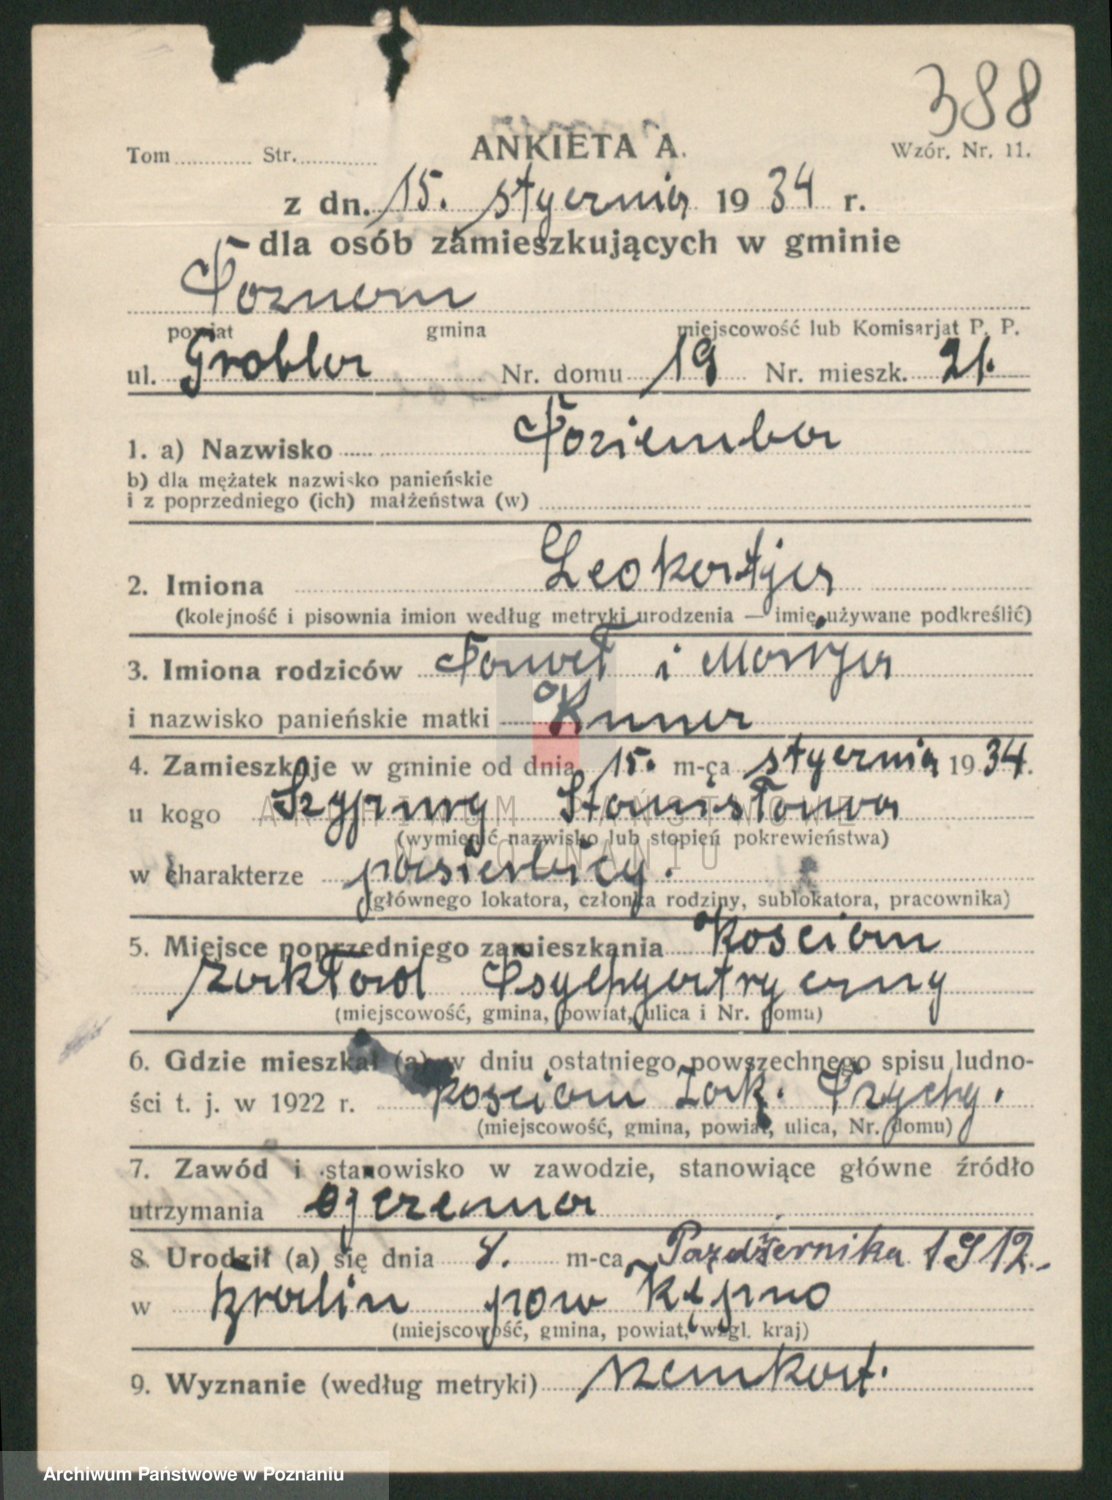 388
Tom ............ Str. ............ ANKIETA A. Wzór. Nr. 11.
z dn. 15. stycznia 1934 r.
dla osób zamieszkujących w gminie
Poznan
powiat gmina miejscowość lub Komisarjat P. P.
ul. Grobla Nr. domu 19 Nr. mieszk. 21.
1. a) Nazwisko Poziemba
b) dla mężatek nazwisko panieńskie
i z poprzedniego (ich) małżeństwa (w)
2. Imiona Leokatja
(kolejność i pisownia imion według metryki urodzenia — imię używane podkreślić)
3. Imiona rodziców Paweł i Marja
i nazwisko panieńskie matki
4. Zamieszkuje w gminie od dnia 15. m-ca stycznia 1934.
u kogo Stanisława
(wymienić nazwisko lub stopień pokrewieństwa)
w charakterze pasierbicy.
(głównego lokatora, członka rodziny, sublokatora, pracownika)
5. Miejsce poprzedniego zamieszkania Koscian
zakład Psychjatryczny
(miejscowość, gmina, powiat, ulica i Nr. domu)
6. Gdzie mieszkał (a) w dniu ostatniego powszechnego spisu ludno-
ści t. j. w 1922 r. Koscian Zak. Psychj.
(miejscowość, gmina, powiat, ulica, Nr. domu)
7. Zawód i stanowisko w zawodzie, stanowiące główne źródło
utrzymania
8. Urodził (a) się dnia m-ca Października 1912.
w Kralin pow Kępno
(miejscowość, gmina, powiat, wzgl. kraj)
9. Wyznanie (według metryki) rzemkat.
ARCHIWUM PAŃSTWOWE
W POZNANIU
Archiwum Państwowe w Poznaniu